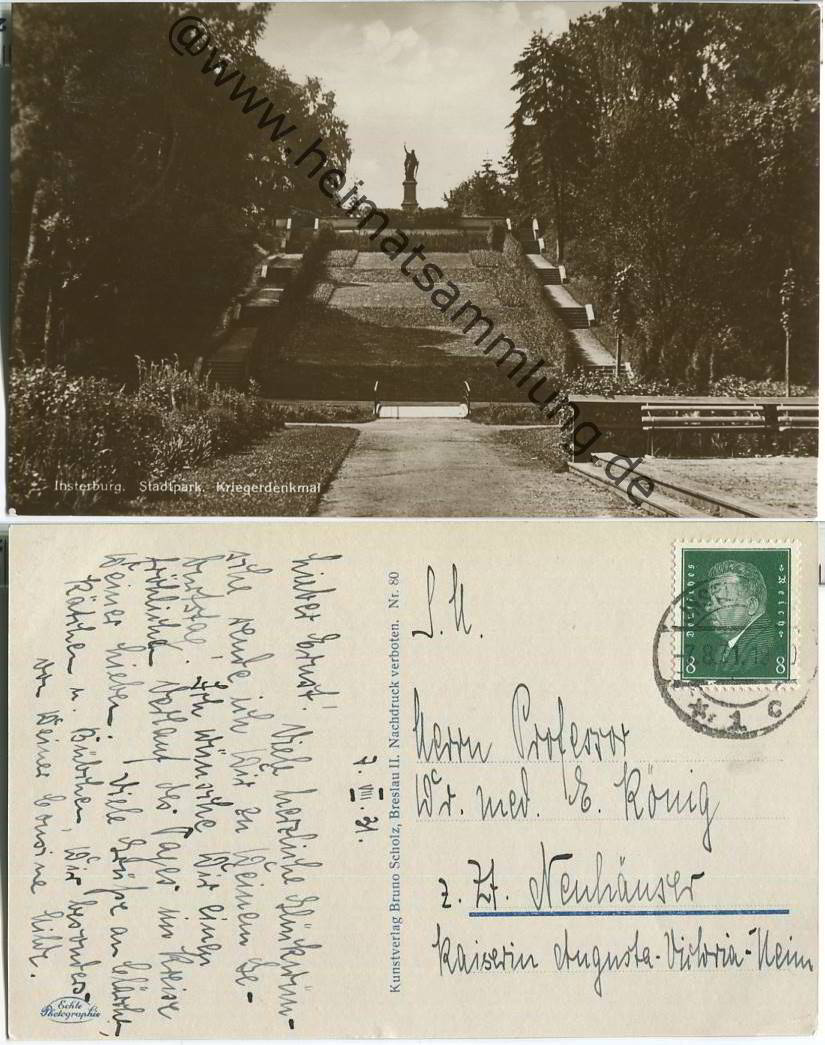 @www.heimatsammlung.de
Insterburg. Stadtpark. Kriegerdenkmal
7. VIII. 31.
Lieber Ernst! Viele herzliche Glückwün-
sche sende ich Dir zu Deinem Ge-
burtstag, ich wünsche Dir einen
fröhlichen Verlauf des Tages im Kreise
Deiner Lieben. Viele Grüße an
Kätchen u. Bübchen, Dir besonders
von Deiner Cousine Hilde.
Echte
Photographie
Kunstverlag Bruno Scholz, Breslau II. Nachdruck verboten. Nr. 80
Deutsches Reich
8 8
7.8.31.
* 1 c
S. H.
Herrn Professor
Dr. med. E. König
z. Zt. Neuhäuser
Kaiserin Augusta-Victoria-Heim